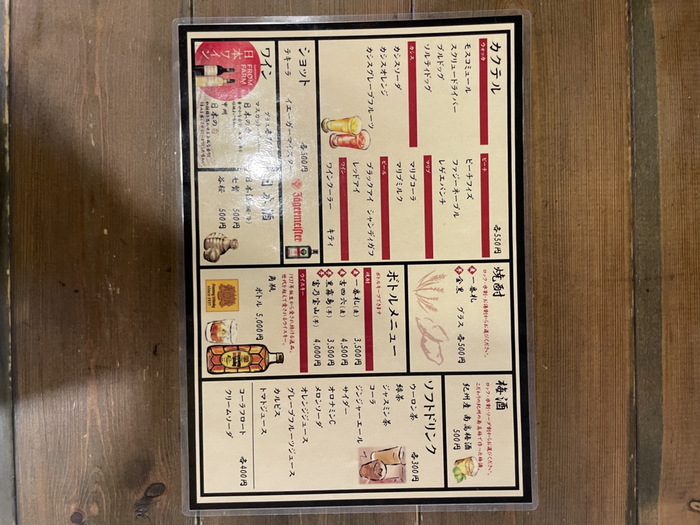 カクテル
各550円
ウォッカ
モスコミュール
スクリュードライバー
ブルドッグ
ソルティドッグ
ピーチ
ピーチフィズ
ファジーネーブル
レゲエパンチ
カシス
カシスソーダ
カシスオレンジ
カシスグレープフルーツ
マリブ
マリブコーラ
マリブミルク
ビール
ブラックアイ
シャンディガフ
レッドアイ
ワイン
ワインクーラー
キティ
ショット
各500円
テキーラ
イエーガーマイスター
Jägermeister
ワイン
FROM FARM
日本ワイン
酒
500円
500円
焼酎
ロック・水割・お湯割からお選びください。
一番札
金黒
グラス 各500円
ボトルメニュー
ボトルキープできます
焼酎
一番札(麦) 3,500円
吉四六(麦) 4,500円
黒霧島(芋) 3,500円
富乃宝山(芋) 4,000円
ウイスキー
角瓶
ボトル 5,000円
梅酒
ロック・水割・ソーダ割からお選びください。
こだわりの紀州の南高梅で作った梅酒。
紀州産 南高梅酒
500円
ソフトドリンク
各300円
ウーロン茶
緑茶
ジャスミン茶
コーラ
ジンジャーエール
サイダー
オロナミンC
メロンソーダ
オレンジジュース
グレープフルーツジュース
カルピス
トマトジュース
各400円
コーラフロート
クリームソーダ